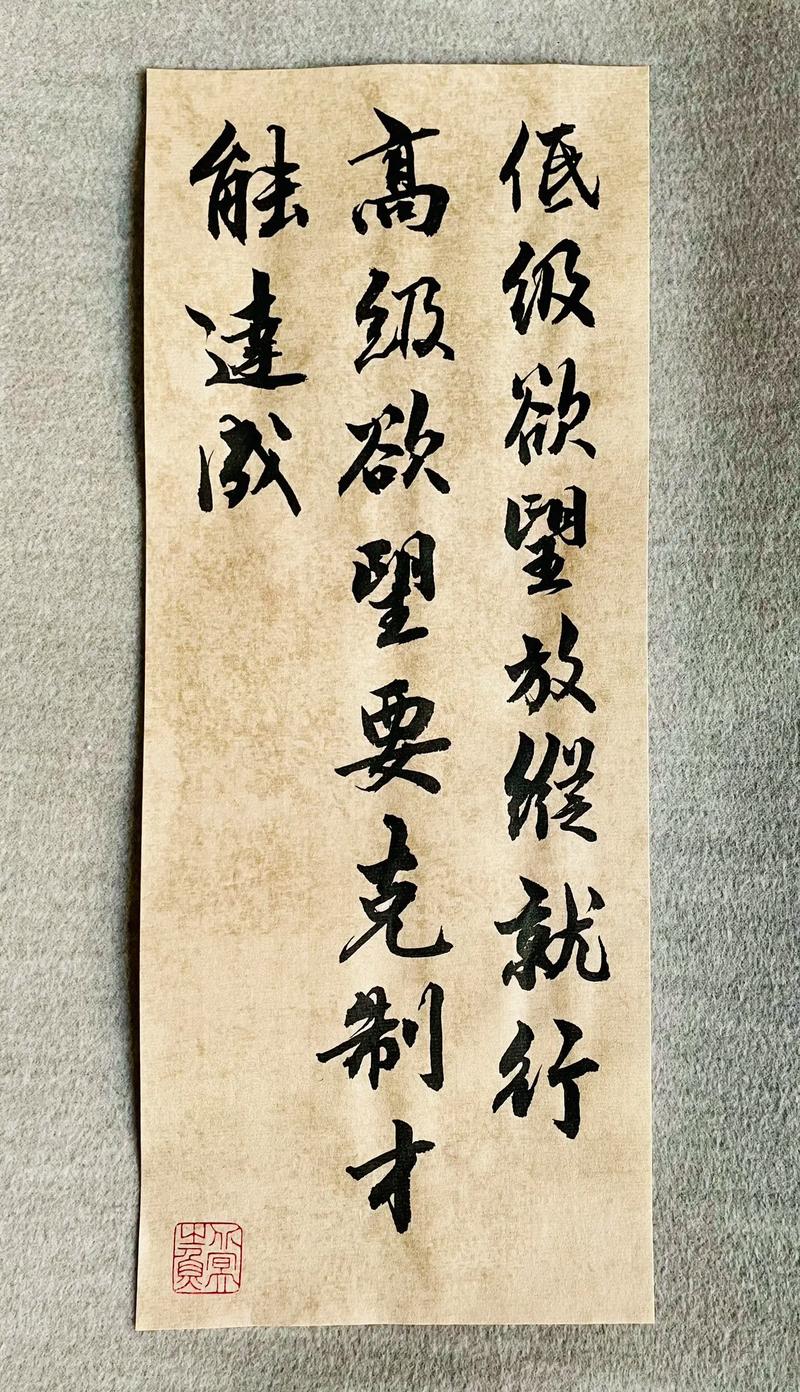 低级欲望放縱就行
高级欲望要克制才
能達成